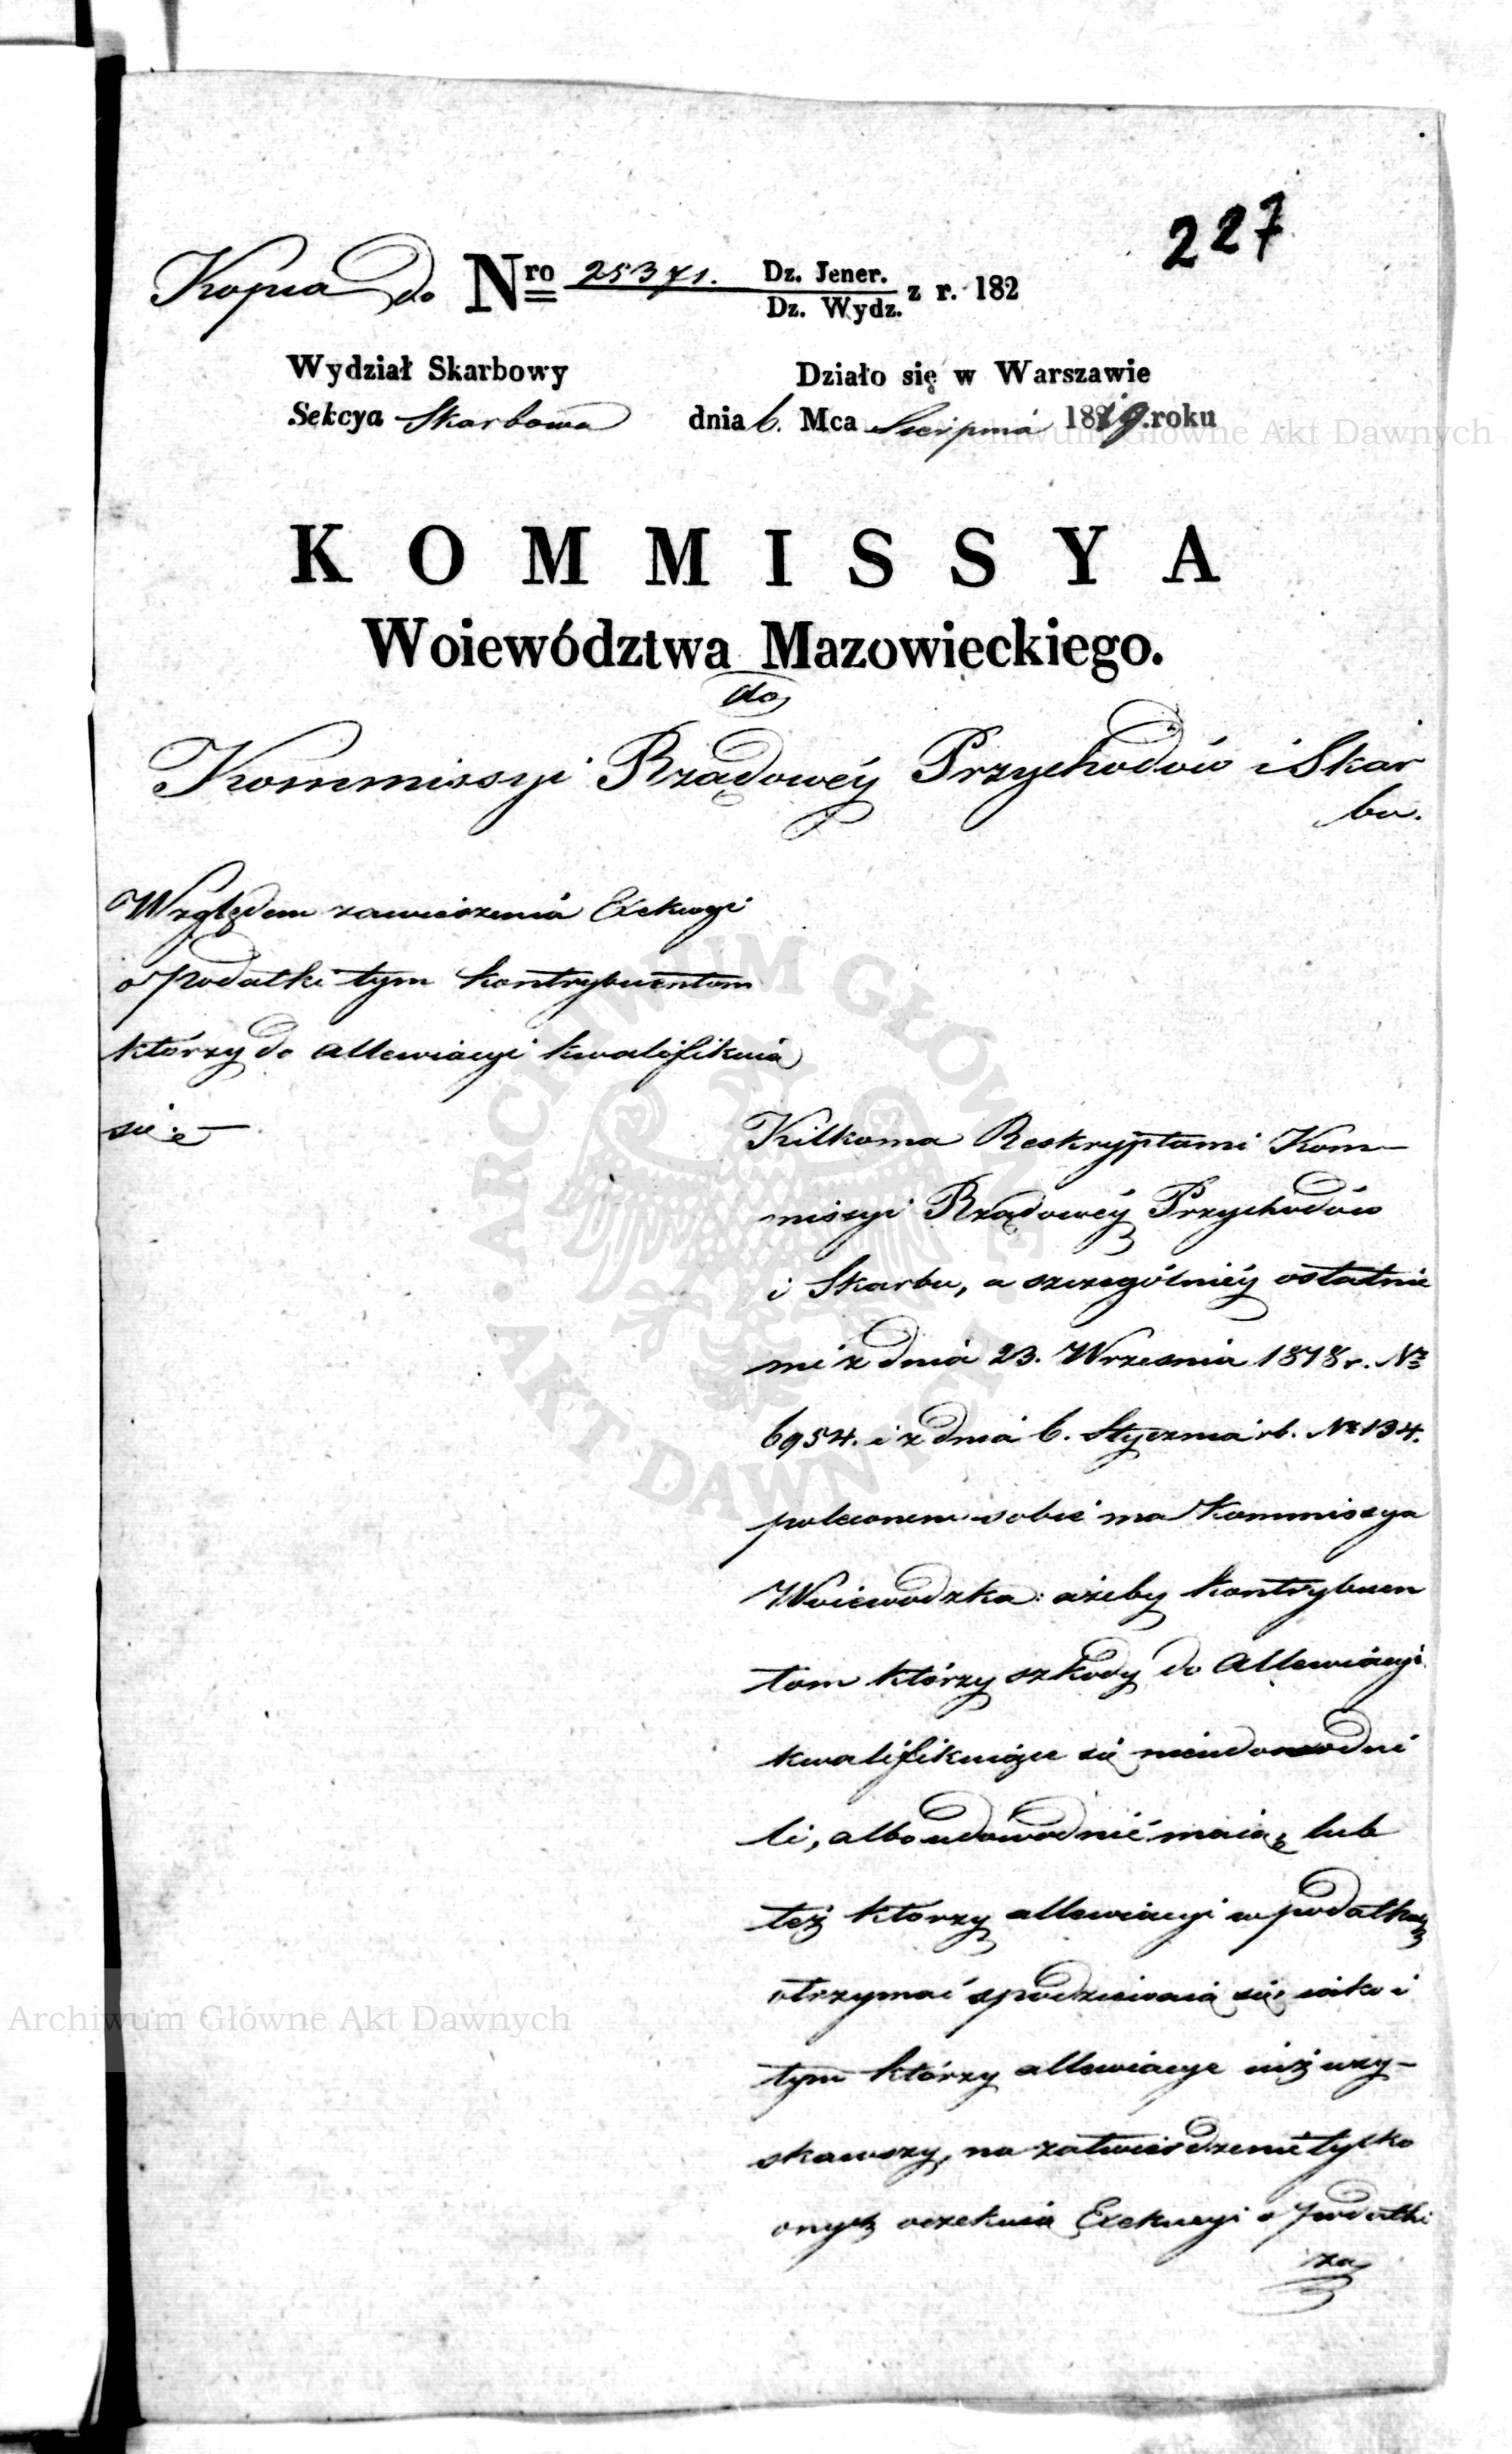 227
Kopia do Nro 25371. Dz. Jener. / Dz. Wydz. z r. 182
Wydział Skarbowy
Działo się w Warszawie
Sekcya Skarbowa dnia 6. Mca Sierpnia 1819. roku
KOMMISSYA
Woiewództwa Mazowieckiego.
do
Kommissyi Rządowéy Przychodów i Skar
bu.
Względem zawieszenia Exekucyi
o podatki tym kontrybuentom
którzy do allewiacyi kwalifikuią
się
Kilkoma Reskryptami Kom-
missyi Rządowéy Przychodów
i Skarbu, a szczególniéy ostatnie
mi z dnia 23. Wrzesnia 1818 r. Nro
6954. i z dnia 6. Stycznia rb. Nro 134.
poleconem sobie ma Kommissya
Woiewodzka: ażeby kontrybuen
tom którzy szkody do Allewiacyi
kwalifikuiące się nieudowodni
li, albo udowodnić maią, lub
też którzy allewiacyi w podatkach
otrzymać spodziewaią się, iako i
tym którzy allewiacye iuż uzy-
skawszy, na zatwierdzenie tylko
onych oczekuią Exekucyi o podatki
za
Archiwum Główne Akt Dawnych
Archiwum Główne Akt Dawnych
ARCHIWUM GŁÓWNE AKT DAWNYCH